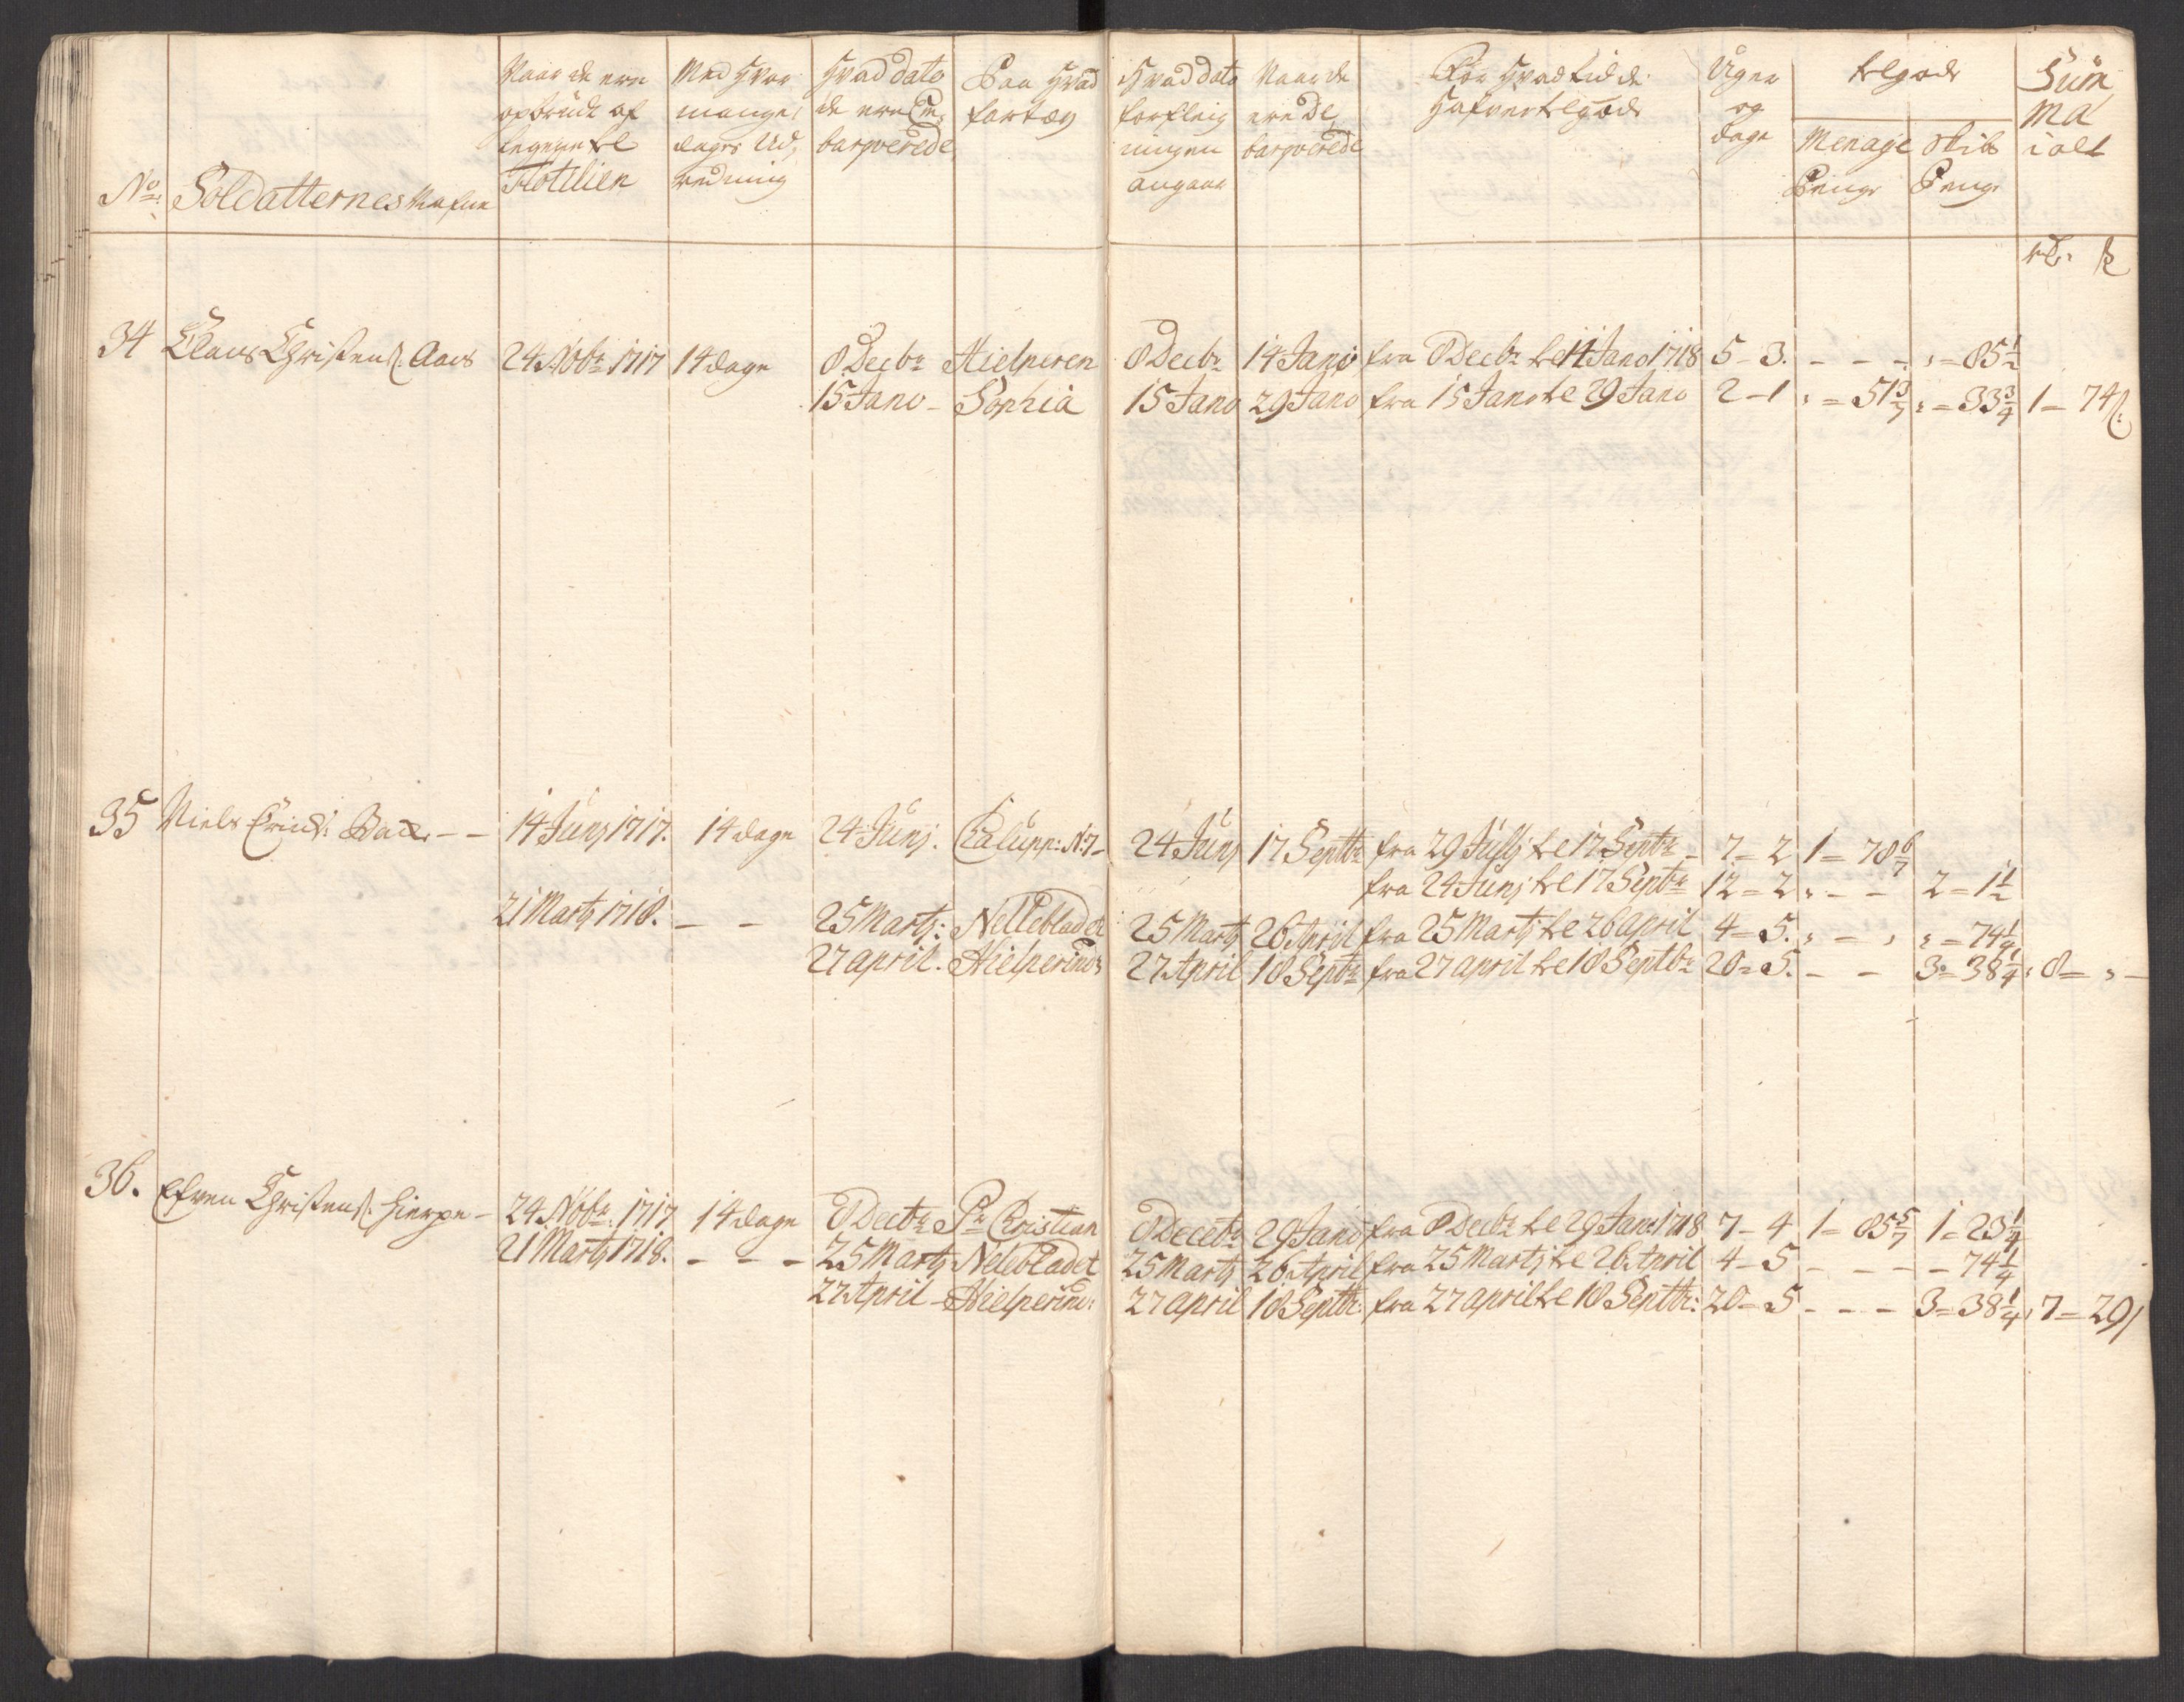 No: Soldatternes Nafne
Naar de ere opbrudt af legeret til Flotilien
Med hvor mange dages Ud, redning
Hvad dato de ere Em, barqverede
Paa hvad fartøy
Hvad dato forfleigningen angaar
Naar de ere De, barqverede
For hvad tid de hafver tilgode
Uger og dage
tilgode
Menage Penge
Skibs Penge
Summa i alt
rd. ß
34 Claus Christens: Aaes 24 Nobr 1717 14 dage 8 Decbr Hielperen 8 Decbr 14 Jano fra 8 Decbr til 14 Jano 1718 5-3. - - - „=85½
15 Jano - Sophia 15 Jano 29 Jano fra 15 Jano til 29 Jano 2-1 „=51 3/7 „=33¾ 1-74ß:
35 Niels 14 Junj 1717. 14 dage 24 Junj. Chalupp: N:7- 24 Junj 17 Septbr fra 29 Julj til 17 Septbr - 7=2 1=78 6/7
fra 24 Junj til 17 Septbr 12=2 „ - - 2=1½
21 Martj 1718. - - 25 Martj: Nellebladet 25 Martj 26 April fra 25 Martj til 26 April 4=5. „ - „ „=74¼
27 April. Hielperind: 27 April 18 Septbr fra 27 april til 18 Septbr 20=5. - - 3=38¼ „8= „ -
36. Christens: Hierpe - 24 Nobr: 1717 14 dage 8 Decbr Pr Christian 8 Decebr 29 Jano fra 8 Decbr til 29 Jan: 1718 7-4 1=85 5/7 1=23¼
21 Martj 1718. - - - 25 Martj Nelebladet 25 Martj 26 April fra 25 Martj til 26 April 4-5 - - - - 74¼
27 April - Hielperind: 27 april 18 Septbr: fra 27 april til 18 Septbr: 20=5 - - - 3=38¼ „7=29ß